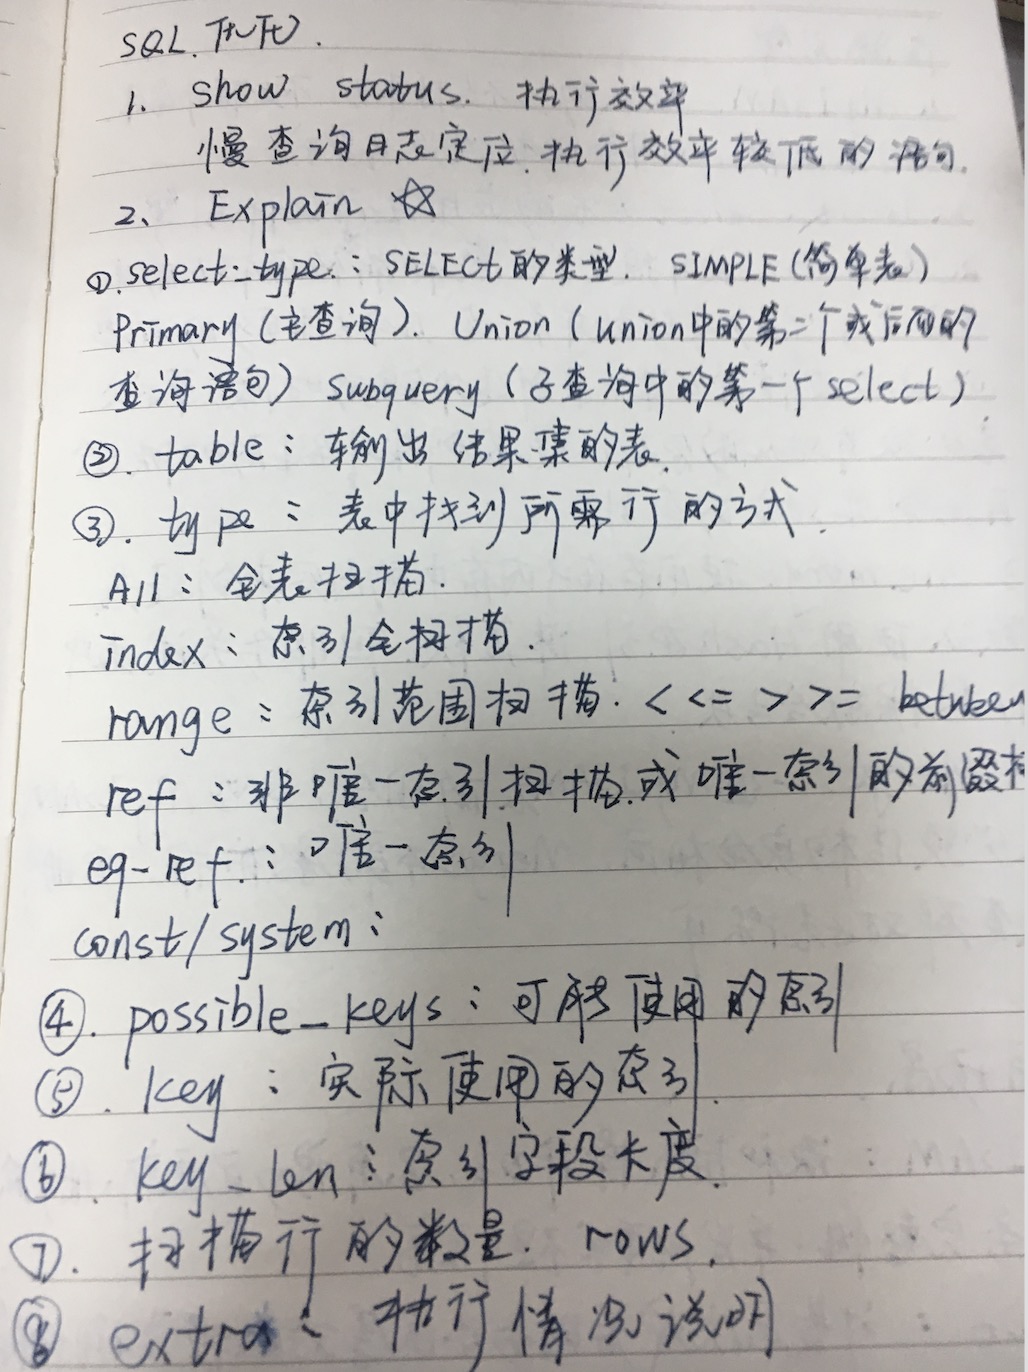 SQL 优化.
1. show status. 执行效率
慢查询日志定位 执行效率较低的语句.
2、 Explain ☆
①. select_type.: SELECt的类型. SIMPLE (简单表)
Primary (主查询). Union (union中的第二个或后面的
查询语句) Subquery (子查询中的第一个 select)
②. table: 输出结果集的表.
③. type: 表中找到所需行的方式.
All: 全表扫描.
index: 索引全扫描.
range: 索引范围扫描. < <= > >= between
ref: 非唯一索引扫描.或 唯一索引的前缀扫
eq-ref.: 唯一索引
const/system:
④. possible_keys: 可能使用的索引
⑤. key: 实际使用的索引.
⑥. key_len: 索引字段长度.
⑦. 扫描行的数量. rows.
⑧ extra: 执行情况说明